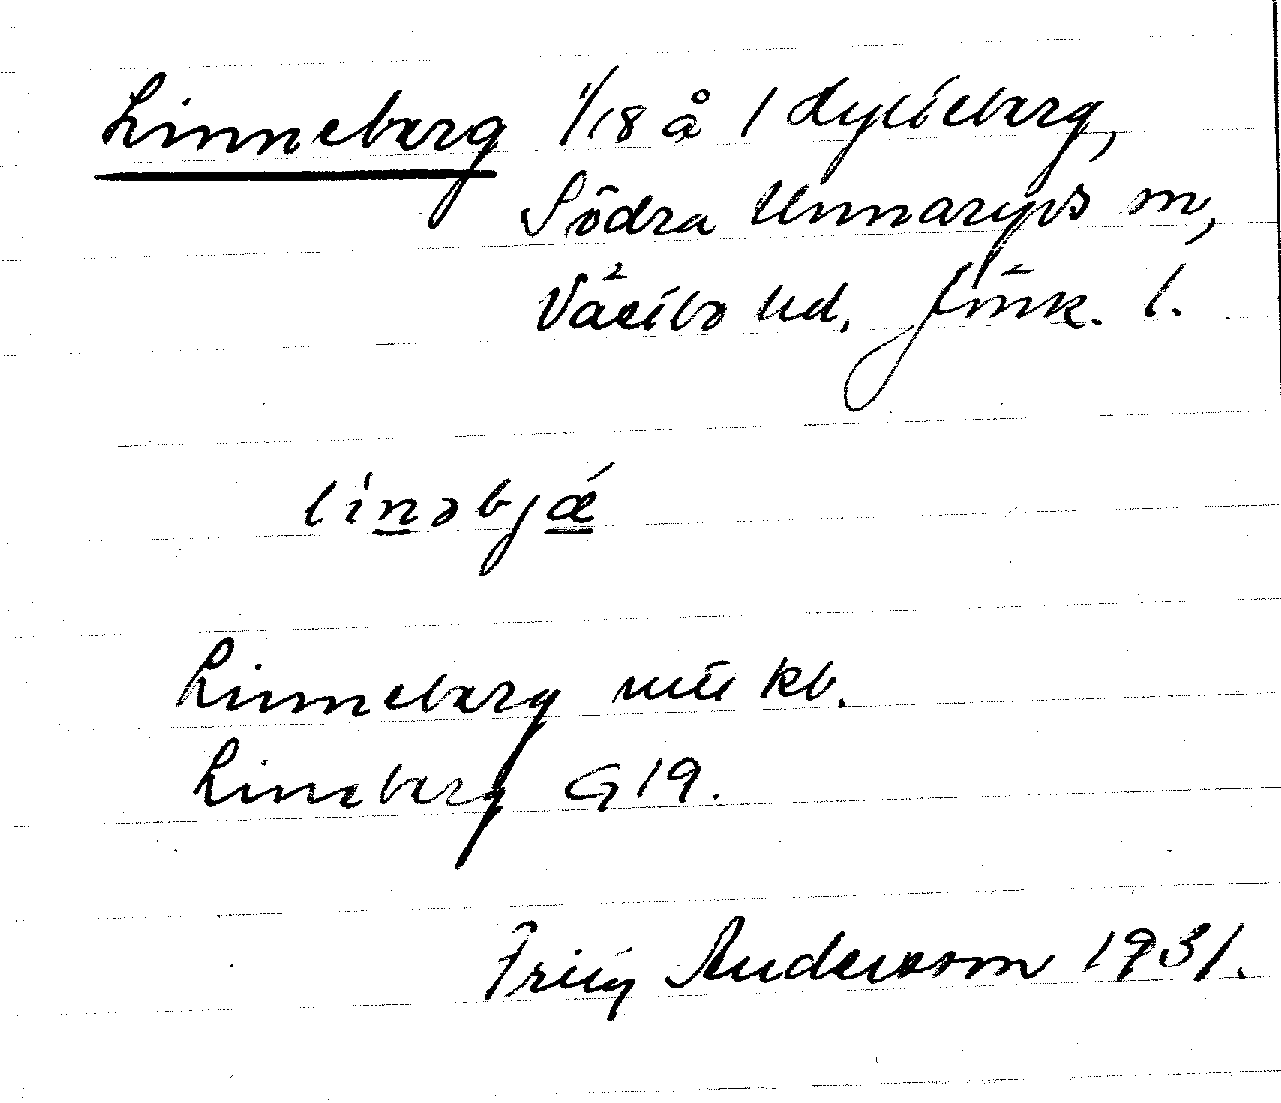 Linneberg 1/18 å 1 Lyckeberg,
Södra Unnaryds sn,
Västbo hd, Jönk. l.
linəbjǽ
Linneberg mtl kb.
Lineberg G 19.
Fritz Andersson 1931.